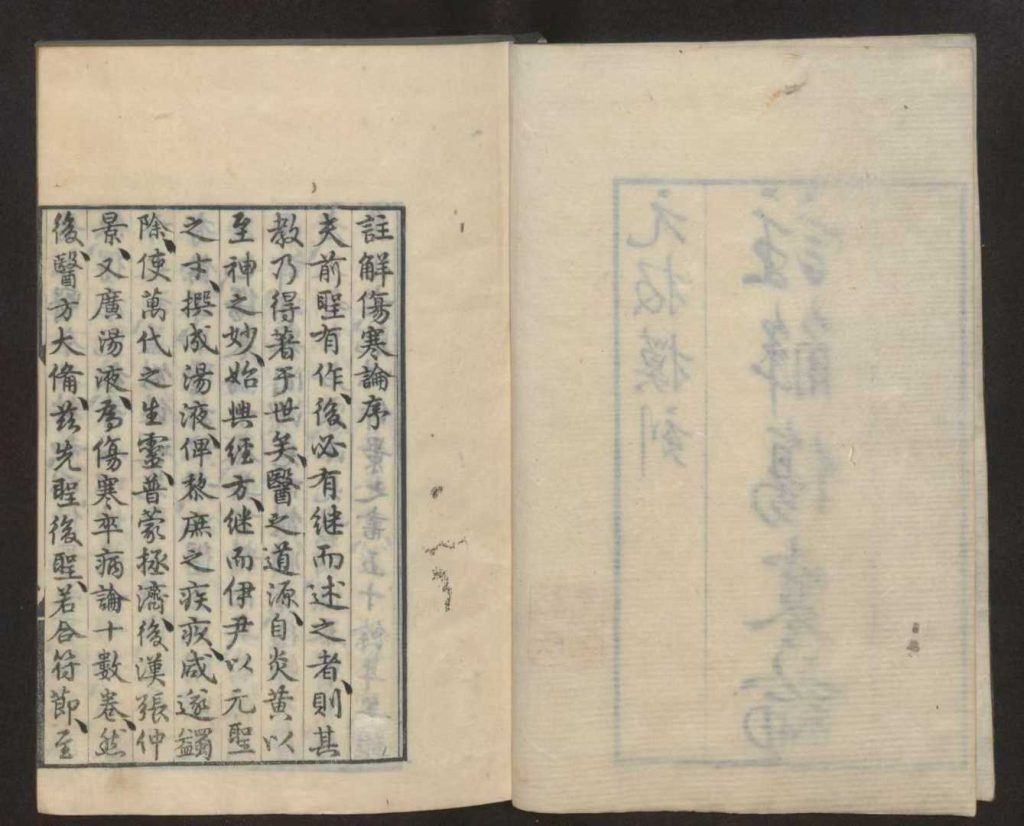 註解傷寒論序
夫前聖有作、後必有継而述之者、則其
教乃得著于世矣、醫之道源、自炎黄以
至神之妙、始興經方、継而伊尹以元聖
之才、撰成湯液、俾黎庶之疾疢、咸遂蠲
除、使萬代之生靈、普蒙拯濟、後漢張仲
景、又廣湯液、為傷寒卒病論十數巻、然
後、醫方大備、茲先聖後聖、若合符節、至